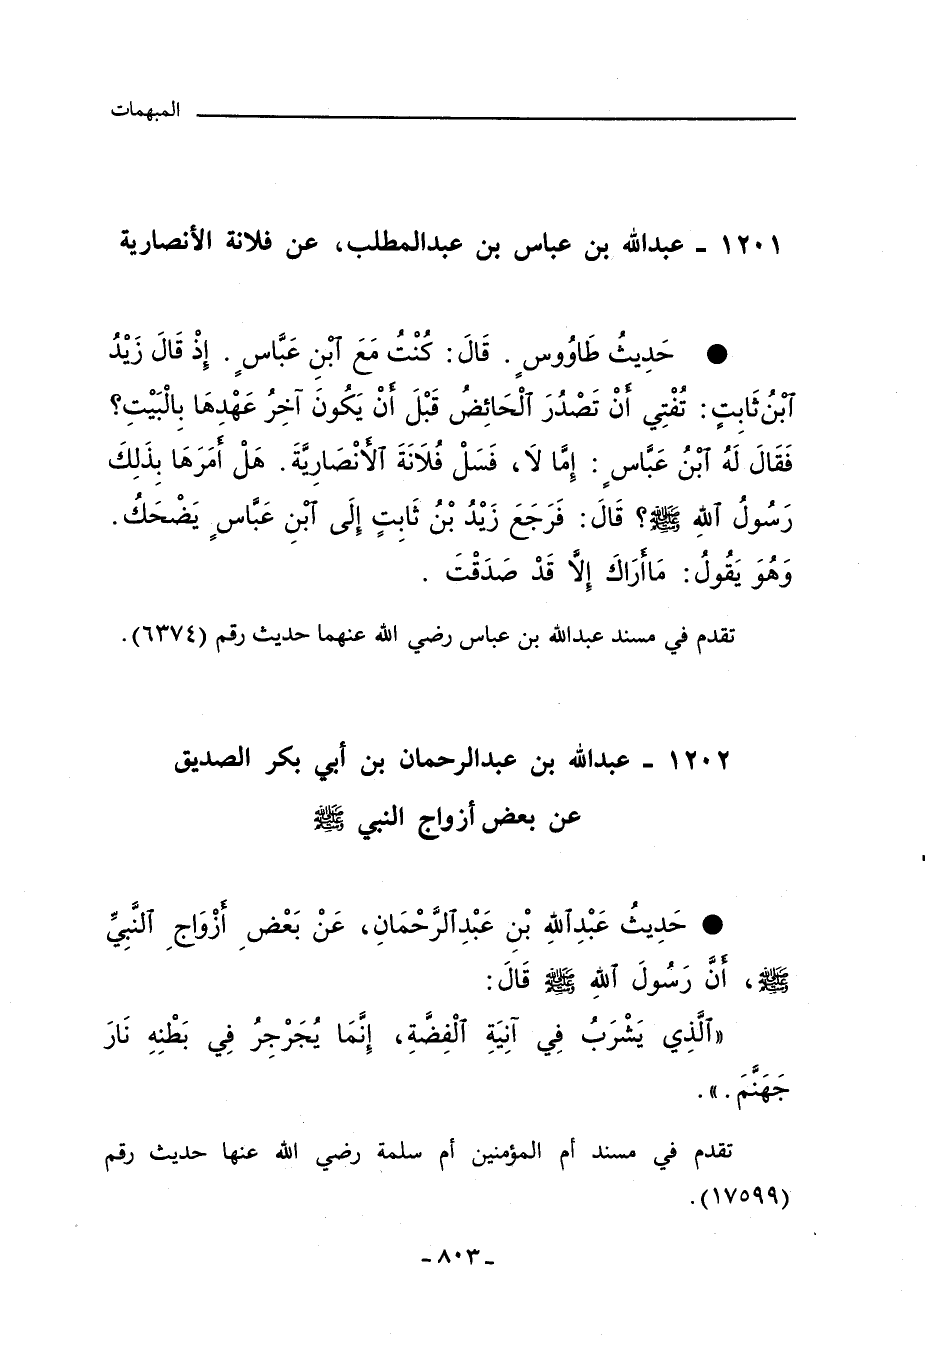 المبهمات
١٢٠١ - عبدالله بن عباس بن عبدالمطلب، عن فلانة الأنصارية
● حَدِيثُ طَاوُوسٍ. قَالَ: كُنْتُ مَعَ ٱبْنِ عَبَّاسٍ. إِذْ قَالَ زَيْدُ
ٱبْنُ ثَابِتٍ: تُفْتِي أَنْ تَصْدُرَ ٱلْحَائِضُ قَبْلَ أَنْ يَكُونَ آخِرُ عَهْدِهَا بِالْبَيْتِ؟
فَقَالَ لَهُ ٱبْنُ عَبَّاسٍ: إِمَّا لَا، فَسَلْ فُلَانَةَ ٱلْأَنْصَارِيَّةَ. هَلْ أَمَرَهَا بِذَلِكَ
رَسُولُ ٱللهِ ﷺ؟ قَالَ: فَرَجَعَ زَيْدُ بْنُ ثَابِتٍ إِلَى ٱبْنِ عَبَّاسٍ يَضْحَكُ.
وَهُوَ يَقُولُ: مَاأَرَاكَ إِلَّا قَدْ صَدَقْتَ .
تقدم في مسند عبدالله بن عباس رضي الله عنهما حديث رقم (٦٣٧٤).
١٢٠٢ - عبدالله بن عبدالرحمان بن أبي بكر الصديق
عن بعض أزواج النبي ﷺ
● حَدِيثُ عَبْدِٱللهِ بْنِ عَبْدِٱلرَّحْمَانِ، عَنْ بَعْضِ أَزْوَاجِ ٱلنَّبِيِّ
ﷺ، أَنَّ رَسُولَ ٱللهِ ﷺ قَالَ:
«ٱلَّذِي يَشْرَبُ فِي آنِيَةِ ٱلْفِضَّةِ، إِنَّمَا يُجَرْجِرُ فِي بَطْنِهِ نَارَ
جَهَنَّمَ.».
تقدم في مسند أم المؤمنين أم سلمة رضي الله عنها حديث رقم
(١٧٥٩٩).
- ٨٠٣ -